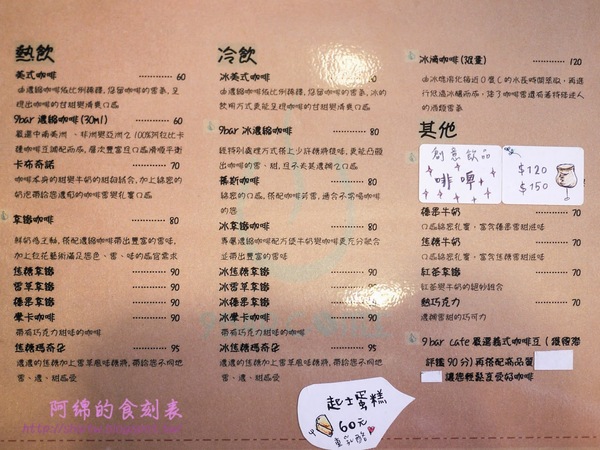 熱飲
美式咖啡 60
由濃縮咖啡依比例稀釋,保留咖啡的香氣,呈
現出咖啡的甘甜與清爽口感
9bar 濃縮咖啡(30ml) 60
嚴選中南美洲、非洲與亞洲之100%阿拉比卡
種咖啡豆調配而成,層次豐富且口感滑順平衡
卡布奇諾 70
咖啡本身的甜與牛奶的甜相結合,加上綿密的
奶泡帶給您濃郁的咖啡香與扎實口感
拿鐵咖啡 70
鮮奶為主軸,搭配濃縮咖啡帶出豐富的香味,
加上拉花藝術滿足您色、香、味的感官需求
焦糖拿鐵 90
香草拿鐵 90
榛果拿鐵 90
摩卡咖啡 90
帶有巧克力甜味的咖啡
焦糖瑪奇朵 95
濃濃的焦糖加上香草風味糖漿,帶給您不同地
香、濃、甜感受
冷飲
冰美式咖啡 70
由濃縮咖啡依比例稀釋,保留咖啡的香氣,冰的
飲用方式更能呈現咖啡的甘甜與清爽口感
9bar 冰濃縮咖啡 80
經特別處理方式搭上少許糖漿提味,更能凸顯
出咖啡的香、甜,且不失其濃稠之口感
慕斯咖啡 80
綿密的口感,搭配咖啡芳香,適合不常喝咖啡
的您
冰拿鐵咖啡 80
專屬濃縮咖啡配方使牛奶與咖啡更充分融合
並帶出豐富的香味
冰焦糖拿鐵 90
冰香草拿鐵 90
冰榛果拿鐵 90
冰摩卡咖啡 90
帶有巧克力甜味的咖啡
冰焦糖瑪奇朵 95
濃濃的焦糖加上香草風味糖漿,帶給您不同地
香、濃、甜感受
冰滴咖啡(限量) 120
由冰塊溶化接近0度C的水長時間萃取,再進
行低溫冰釀而成,除了咖啡香還有著特殊迷人
的酒類香氣
其他
創意飲品
啡啤
$120
$150
榛果牛奶 70
口感綿密扎實,富含榛果香甜味道
焦糖牛奶 70
口感綿密扎實,富含焦糖香甜味道
紅茶拿鐵 70
紅茶與牛奶的絕妙組合
熱巧克力 70
濃稠香甜的巧可力
9 bar cafe 嚴選義式咖啡豆(獲得
評鑑90分)再搭配高品質
讓您輕鬆享受好咖啡
起士蛋糕
60元
重乳酪
阿綿的食刻表